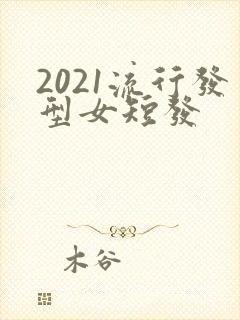 2021流行發
型女短發
木谷